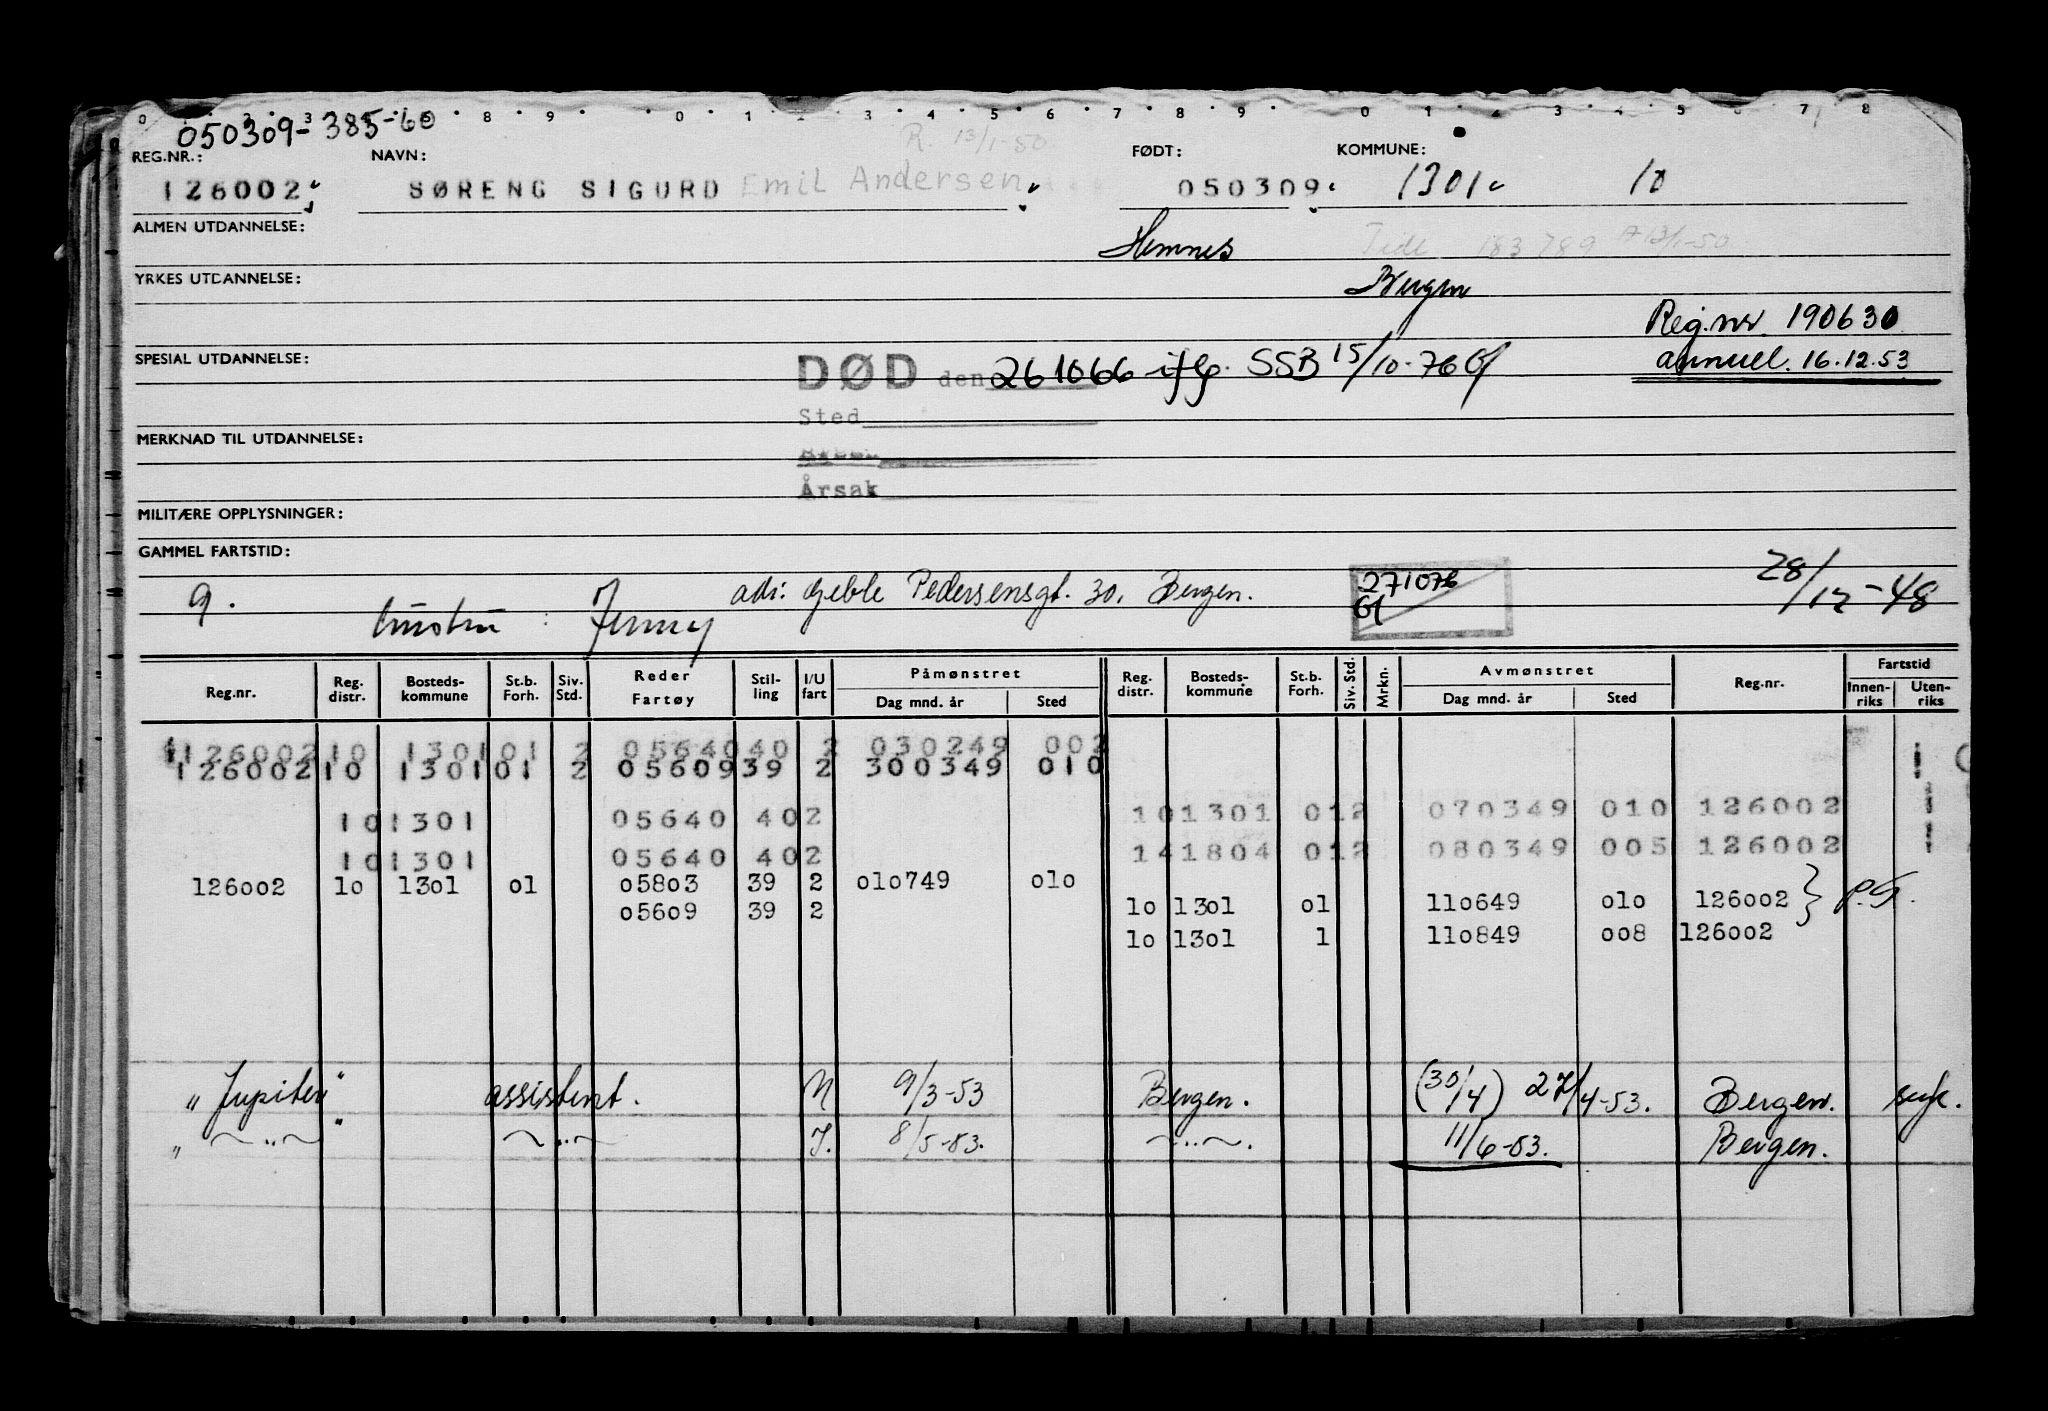 050309-385-60
R. 13/1-50
REG.NR.: NAVN: FØDT: KOMMUNE:
126002 SØRENG SIGURD Emil Andersen 050309 1301 10
ALMEN UTDANNELSE: Hemnes 183789 13/1-50
YRKES UTDANNELSE: Bergen
Reg.nr. 190630
SPESIAL UTDANNELSE: DØD den 261066 iflg. SSB 15/10-76 annuel. 16.12.53
Sted
MERKNAD TIL UTDANNELSE:
Årsak
MILITÆRE OPPLYSNINGER:
GAMMEL FARTSTID:
g. hustru : Jenny adr: Geble Pedersensgt. 30, Bergen. 271076 28/12-48
Reg.nr. Reg. distr. Bosteds-kommune St.b. Forh. Siv. Std. Reder Fartøy Stil-ling I/U fart Påmønstret Dag mnd. år Sted Reg. distr. Bosteds-kommune St.b. Forh. Siv. Std. Mrkn. Avmønstret Dag mnd. år Sted Reg.nr. Fartstid Innen-riks Uten-riks
126002 10 1301 01 2 05640 40 2 030249 002
126002 10 1301 01 2 05609 39 2 300349 010 1
10 1301 05640 40 2 10 1301 01 2 070349 010 126002 1
10 1301 05640 40 2 14 1804 01 2 080349 005 126002 1
126002 10 1301 01 05803 39 2 010749 010
05609 39 2 10 1301 01 110649 010 126002 } P.G.
10 1301 1 110849 008 126002
"Jupiter" assistent. N 9/3-53 Bergen. (30/4) 27/4-53. Bergen. syk.
" ~..~ " ~..~ J. 8/5-53. ~..~. 11/6-53. Bergen.